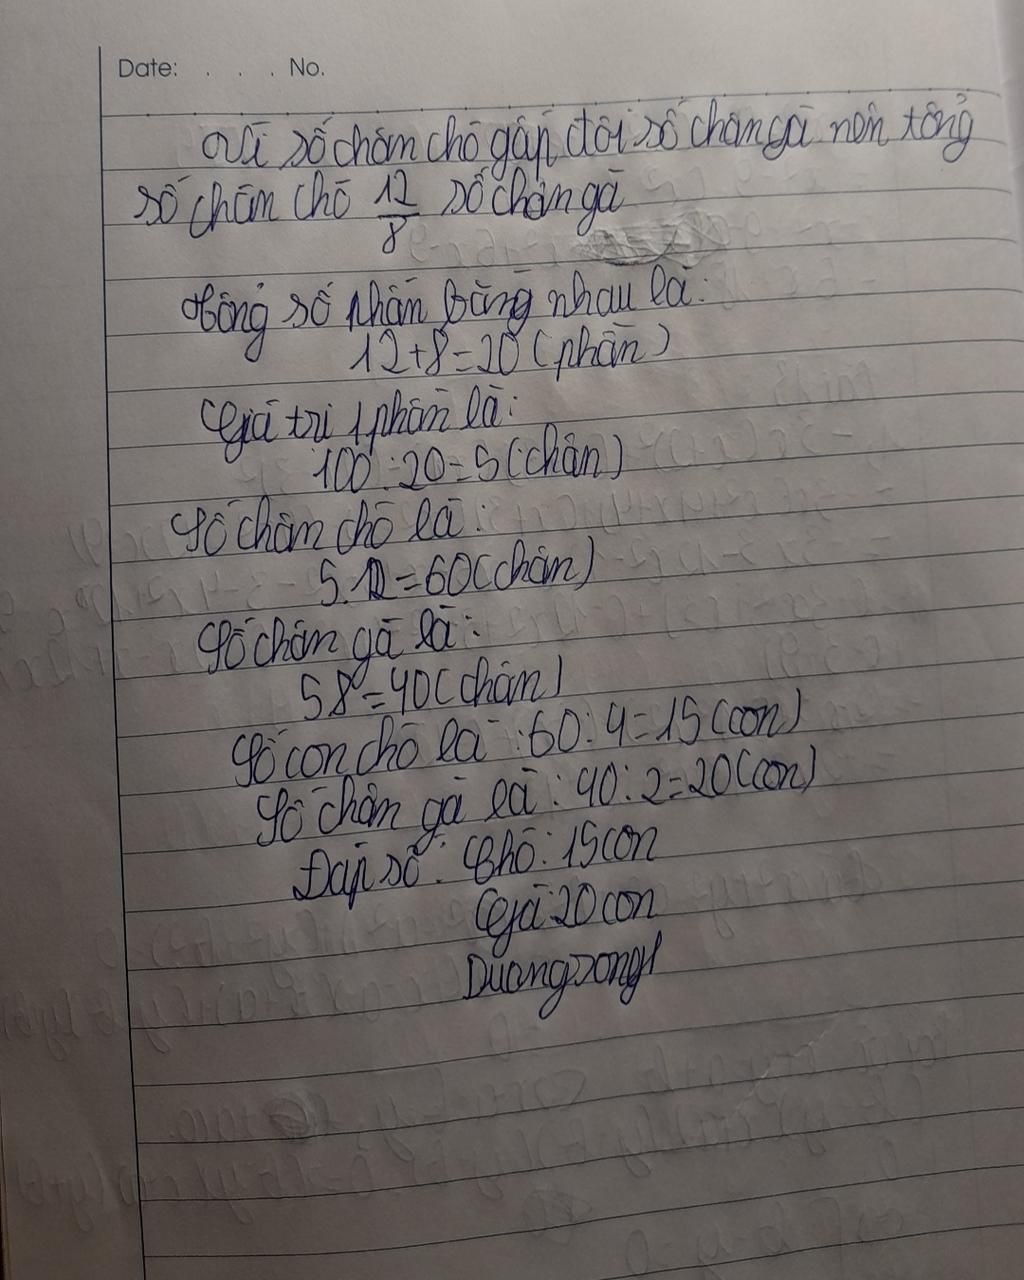 Date: . . . No.
Vì số chân chó gấp đôi số chân gà nên tổng
số chân chó 12/8 số chân gà
Tổng số phần bằng nhau là:
12+8=20(phần)
Giá trị 1 phần là:
100:20=5(chân)
Số chân chó là:
5.12=60(chân)
Số chân gà là:
5 8=40(chân)
Số con chó là :60:4=15(con)
Số chân gà là:40:2=20(con)
Đáp số: Chó: 15con
Gà:20con